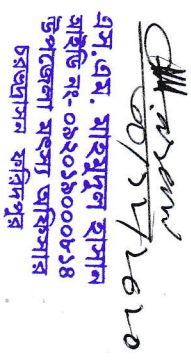 ০৮/১২/২০২০
এস.এম. মাহমুদুল হাসান
আইডি নং- ০৯২০১৯০০০৮১৪
উপজেলা মৎস্য অফিসার
চরভদ্রাসন ফরিদপুর